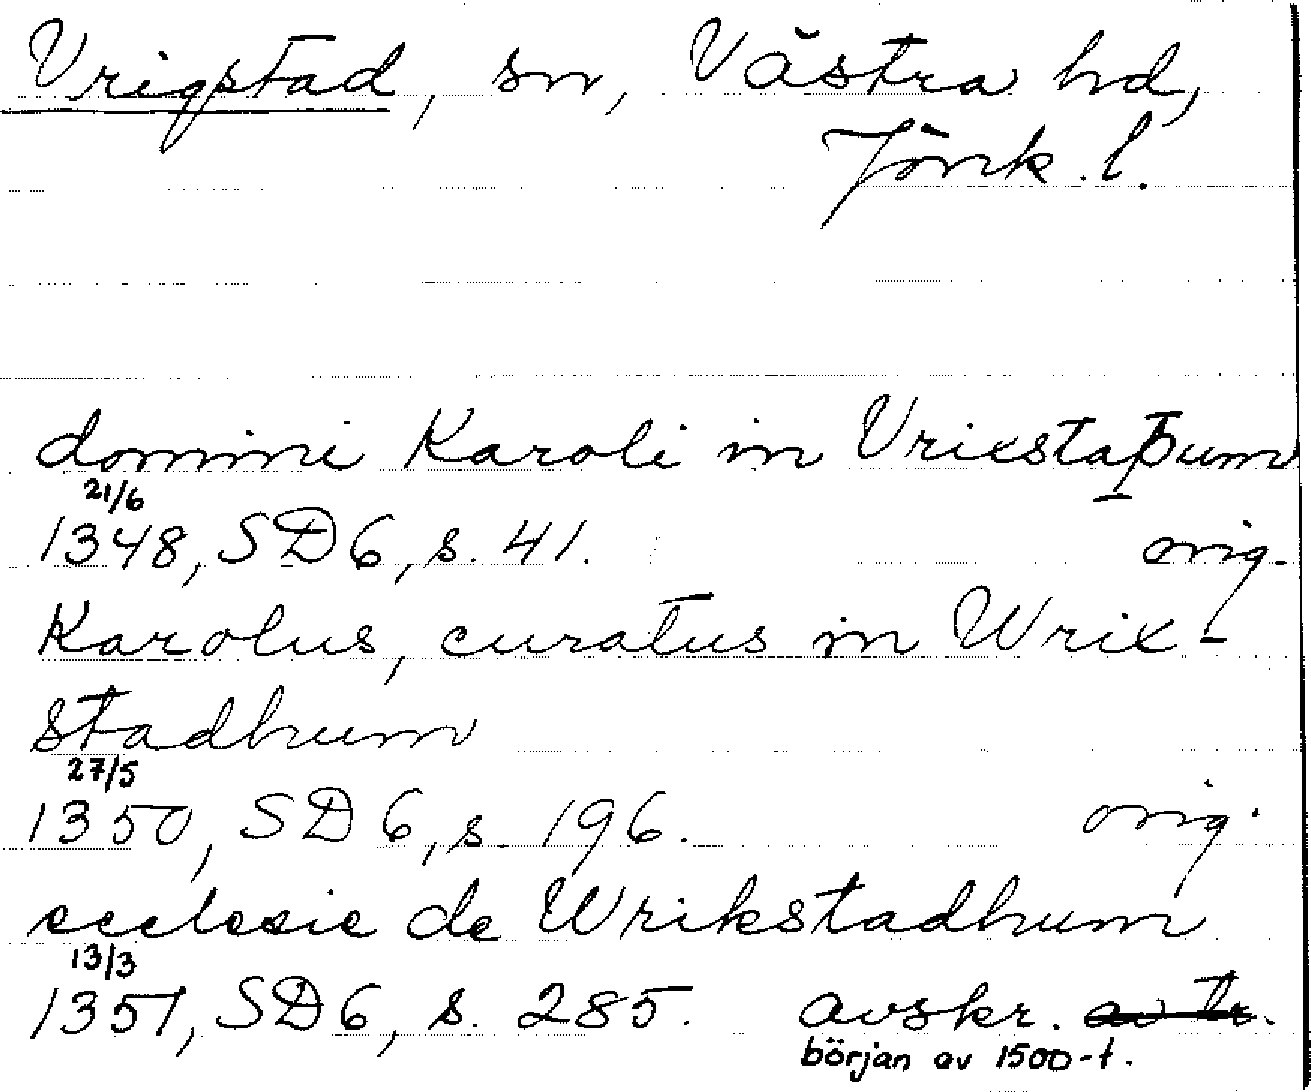 Vrigstad, sn, Västra hd,
Jönk. l.
domini Karoli in Vricstaþum
21/6
1348, SD 6, s. 41. orig.
Karolus, curatus in Wrix-
stadhum
27/5
1350, SD 6, s. 196. orig.
ecclesie de Wrikstadhum
13/3
1351, SD 6, s. 285. avskr. av tr.
början av 1500-t.